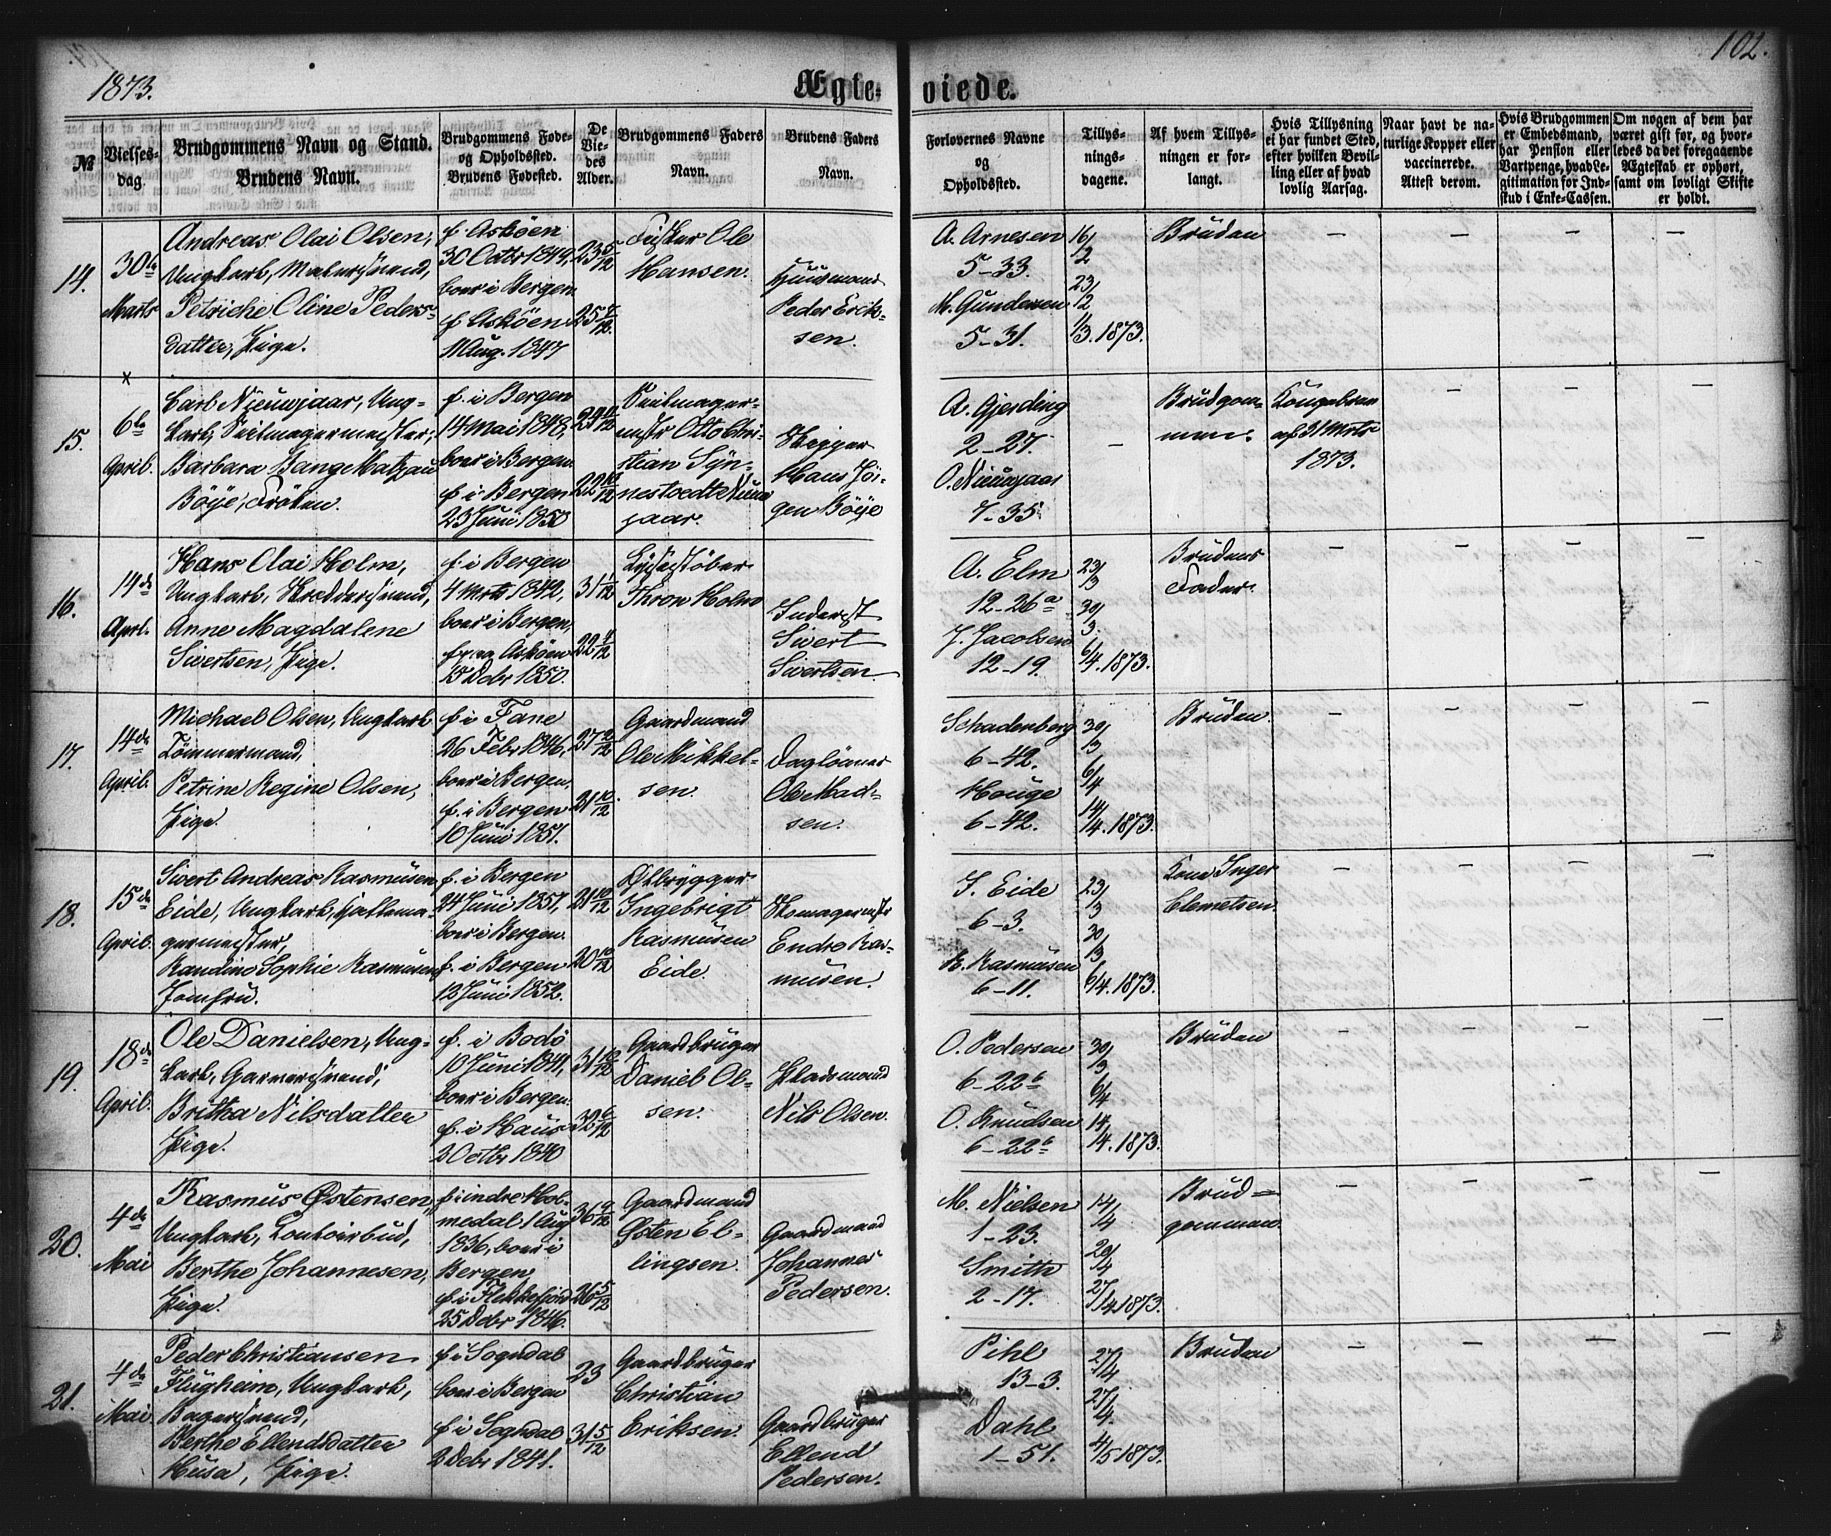 1873.
Ægte-
viede.
102.
№
Vielses-
dag.
Brudgommens Navn og Stand.
Brudens Navn.
Brudgommens Føde-
og Opholdssted.
Brudens Fødested.
De
Vie-
des
Alder.
Brudgommens Faders
Navn.
Brudens Faders
Navn.
Forlovernes Navne
og
Opholdssted.
Tillys-
nings-
dagene.
Af hvem Tillys-
ningen er for-
langt.
Hvis Tillysning
ei har fundet Sted,
efter hvilken Bevil-
ling eller af hvad
lovlig Aarsag.
Naar havt de na-
turlige Kopper eller
vaccinerede.
Attest derom.
Hvis Brudgommen
er Embedsmand,
har Pension eller
Vartpenge, hvad Le-
gitimation for Ind-
skud i Enke-Cassen.
Om nogen af dem har
været gift før, og hvor-
ledes da det foregaaende
Ægteskab er ophørt,
samt om lovligt Skifte
er holdt.
14.
30te
Marts
Andreas Olai Olsen,
Ungkarl, Malersvend,
Petriche Oline Peders-
datter, Pige.
f. Askøen
30 Octbr 1849,
boer i Bergen
f. Askøen
11 Aug. 1847
23 5/12
25 7/12
Fisker Ole
Hansen.
Huusmand
Peder Erik-
sen.
A. Arnesen
5-33.
M. Gundersen
5-31.
16/2
23/2
1/3. 1873.
Bruden
— — — —
15.
6te
April.
Carl Nieuwjaar, Ung-
karl, Seilmagermester,
Barbara Bange Matzau
Böÿe, Fröken.
f. i Bergen
14 Mai 1848,
boer i Bergen
f. i Bergen
23 Juni 1850
24 10/12
22 10/12
Seilmager-
mstr Otto Chri-
stian Sÿn-
nestvedt Nieuw
jaar.
Skipper
Hans Jör-
gen Böÿe
A. Gjerding
2-27.
O. Nieuwjaar
7-35.
—
Brudgom-
men.
Kongebrev
af 31 Mrts
1873.
— — —
16.
14de
Aprl.
Hans Olai Holm,
Ungkarl, Skreddersvend,
Anne Magdalene
Sivertsen, Pige.
f. i Bergen
4 Mrts 1842,
boer i Bergen,
f. paa Askøen
25 Dcbr 1850.
31 1/12
22 4/12
Lÿsestøber
Thron Holm
Inderst
Sivert
Sivertsen
A. Elm
12-26a
J. Jacobsen
12-19.
23/3
30/3.
6/4. 1873.
Brudens
Fader.
— — — —
17.
14de
April.
Michael Olsen, Ungkarl
Tömmermand,
Petrine Regine Olsen,
Pige.
f. i Fane
26 Febr 1846,
boer i Bergen,
f. i Bergen
10 Juni 1851.
27 2/12
21 10/12
Gaardmand
Ole Mikkel-
sen.
Daglönner
Ole Mad-
sen.
Schadenberg
6-42.
Houge
6-42.
30/3
6/4
14/4. 1873.
Bruden
— — — —
18.
15de
April.
Sivert Andreas Rasmusen
Eide, Ungkarl, Hattema-
germester,
Randine Sophie Rasmusen
Jomfru.
f. i Bergen
24 Juni 1851,
boer i Bergen.
f. i Bergen
13 Juni 1852.
21 10/12
20 10/12
Ølbrÿgger
Ingebrigt
Rasmusen
Eide.
Skomagermstr
Endre Ras-
musen.
I. Eide
6-3.
E. Rasmusen
6-11.
23/3
30/3
6/4. 1873.
Kone Inger
Clemetsen.
— — — —
19.
18de
April.
Ole Danielsen, Ung-
karl, Garversvend,
Britha Nilsdatter
Pige.
f. i Bodö
10 Juni 1841,
boer i Bergen
f. i Haus
2 Octbr 1840
31 10/12
32 6/12
Gaardbruger
Daniel Ol-
sen.
Pladsmand
Nils Olsen.
O. Pedersen
6-22b
O. Knudsen
6-22b
30/3
6/4
14/4. 1873.
Bruden
— — — —
20.
4de
Mai
Rasmus Østensen,
Ungkarl, Contoirbud,
Berthe Johannesen,
Pige.
f. indre Hol-
medal 1 Aug
1836, boer i
Bergen,
f. i Flekkefjord
25 Dcbr 1846.
36 9/12
26 5/12
Gaardmand
Østen El-
lingsen.
Gaardmand
Johannes
Pedersen.
M. Nielsen
1-23.
Smith
2-17.
14/4
20/4
27/4 1873.
Brud-
gommen.
— — — —
21.
4de
Mai
Peder Christiansen
Flugheim, Ungkarl,
Bagersvend,
Berthe Ellendsdatter
Husa, Pige.
f. i Sogndal
boer i Bergen
f. i Sogndal
2 Dcbr 1841.
23
31 5/12
Gaardbruger
Christian
Eriksen.
Gaardbruger
Ellend
Pedersen.
Pihl
13-3.
Dahl
1-51.
27/4
27/4.
4/5 1873.
Bruden
— — — —